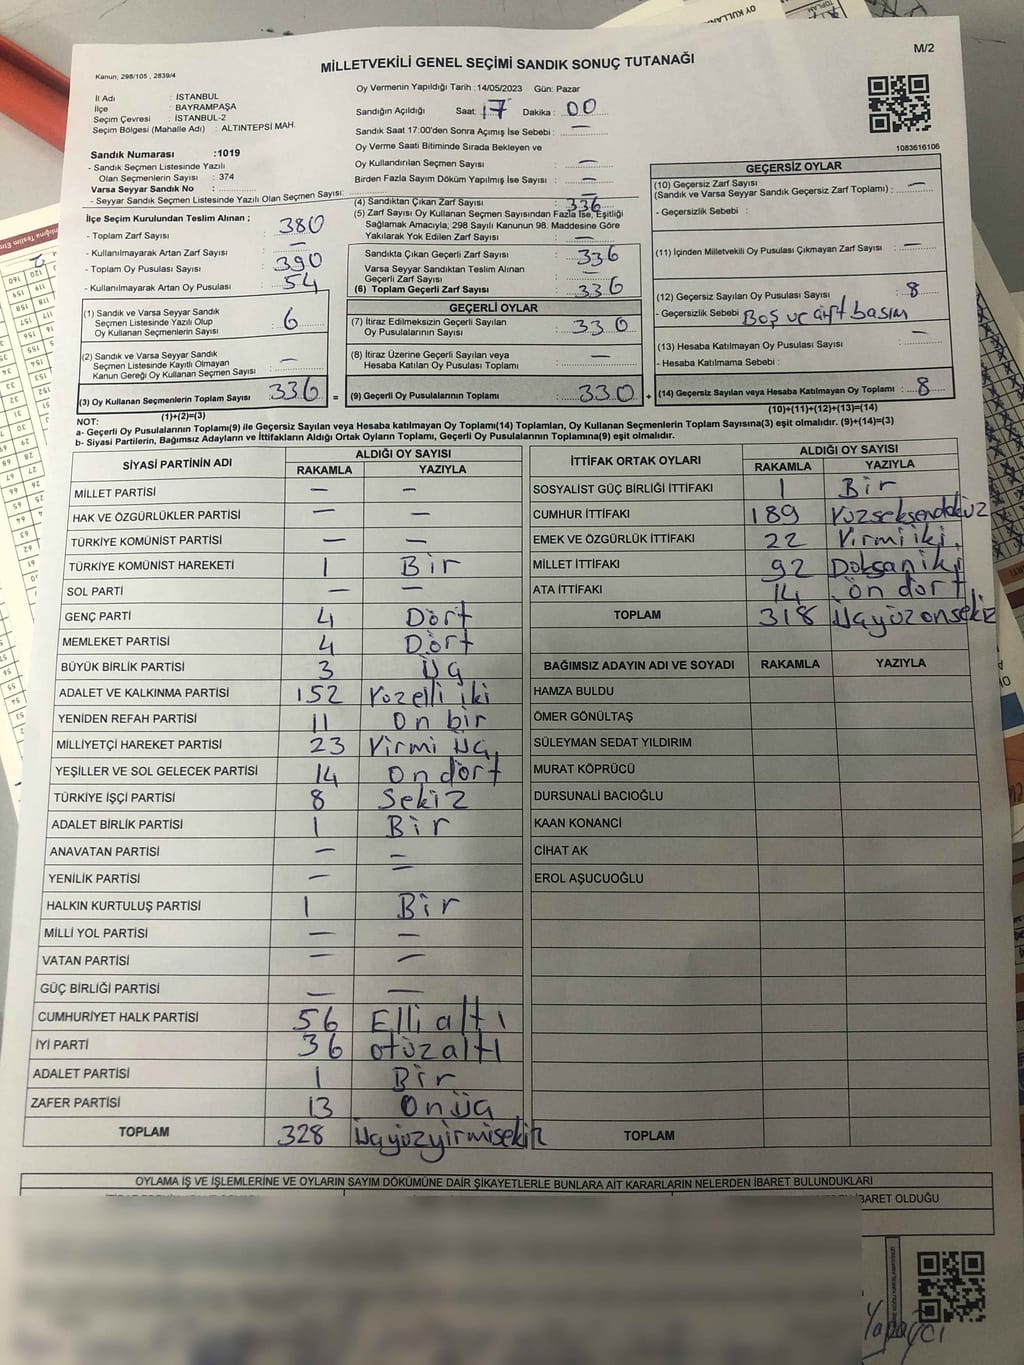 M/2
MİLLETVEKİLİ GENEL SEÇİMİ SANDIK SONUÇ TUTANAĞI
Kanun, 298/105 , 2839/4
İl Adı : İSTANBUL
İlçe : BAYRAMPAŞA
Seçim Çevresi : İSTANBUL-2
Seçim Bölgesi (Mahalle Adı) : ALTINTEPSİ MAH.
Sandık Numarası :1019
- Sandık Seçmen Listesinde Yazılı
Olan Seçmenlerin Sayısı : 374
Varsa Seyyar Sandık No :
- Seyyar Sandık Seçmen Listesinde Yazılı Olan Seçmen Sayısı:
Oy Vermenin Yapıldığı Tarih :14/05/2023 Gün: Pazar
Sandığın Açıldığı Saat: 17 Dakika : 00
Sandık Saat 17:00'den Sonra Açımış İse Sebebi : —
Oy Verme Saati Bitiminde Sırada Bekleyen ve
Oy Kullandırılan Seçmen Sayısı : —
Birden Fazla Sayım Döküm Yapılmış İse Sayısı : —
1083616106
İlçe Seçim Kurulundan Teslim Alınan ;
- Toplam Zarf Sayısı : 380
- Kullanılmayarak Artan Zarf Sayısı : —
- Toplam Oy Pusulası Sayısı : 390
- Kullanılmayarak Artan Oy Pusulası : 54
(1) Sandık ve Varsa Seyyar Sandık
Seçmen Listesinde Yazılı Olup
Oy Kullanan Seçmenlerin Sayısı : 6
(2) Sandık ve Varsa Seyyar Sandık
Seçmen Listesinde Kayıtlı Olmayan
Kanun Gereği Oy Kullanan Seçmen Sayısı : —
(3) Oy Kullanan Seçmenlerin Toplam Sayısı 336 =
(1)+(2)=(3)
(4) Sandıktan Çıkan Zarf Sayısı : 336
(5) Zarf Sayısı Oy Kullanan Seçmen Sayısından Fazla İse, Eşitliği
Sağlamak Amacıyla; 298 Sayılı Kanunun 98. Maddesine Göre
Yakılarak Yok Edilen Zarf Sayısı : —
Sandıkta Çıkan Geçerli Zarf Sayısı : 336
Varsa Seyyar Sandıktan Teslim Alınan
Geçerli Zarf Sayısı : —
(6) Toplam Geçerli Zarf Sayısı : 336
GEÇERLİ OYLAR
(7) İtiraz Edilmeksizin Geçerli Sayılan
Oy Pusulalarının Sayısı : 330
(8) İtiraz Üzerine Geçerli Sayılan veya
Hesaba Katılan Oy Pusulası Toplamı : —
(9) Geçerli Oy Pusulalarının Toplamı : 330 +
GEÇERSİZ OYLAR
(10) Geçersiz Zarf Sayısı
(Sandık ve Varsa Seyyar Sandık Geçersiz Zarf Toplamı) : —
- Geçersizlik Sebebi :
(11) İçinden Milletvekili Oy Pusulası Çıkmayan Zarf Sayısı : —
(12) Geçersiz Sayılan Oy Pusulası Sayısı : 8
- Geçersizlik Sebebi : Boş ve çift basım
(13) Hesaba Katılmayan Oy Pusulası Sayısı : —
- Hesaba Katılmama Sebebi :
(14) Geçersiz Sayılan veya Hesaba Katılmayan Oy Toplamı : 8
(10)+(11)+(12)+(13)=(14)
NOT:
a- Geçerli Oy Pusulalarının Toplamı(9) ile Geçersiz Sayılan veya Hesaba katılmayan Oy Toplamı(14) Toplamları, Oy Kullanan Seçmenlerin Toplam Sayısına(3) eşit olmalıdır. (9)+(14)=(3)
b- Siyasi Partilerin, Bağımsız Adayların ve İttifakların Aldığı Ortak Oyların Toplamı, Geçerli Oy Pusulalarının Toplamına(9) eşit olmalıdır.
SİYASİ PARTİNİN ADI ALDIĞI OY SAYISI
RAKAMLA YAZIYLA
MİLLET PARTİSİ — —
HAK VE ÖZGÜRLÜKLER PARTİSİ — —
TÜRKİYE KOMÜNİST PARTİSİ — —
TÜRKİYE KOMÜNİST HAREKETİ 1 Bir
SOL PARTİ — —
GENÇ PARTİ 4 Dört
MEMLEKET PARTİSİ 4 Dört
BÜYÜK BİRLİK PARTİSİ 3 Üç
ADALET VE KALKINMA PARTİSİ 152 Yüzelli iki
YENİDEN REFAH PARTİSİ 11 On bir
MİLLİYETÇİ HAREKET PARTİSİ 23 Yirmi üç
YEŞİLLER VE SOL GELECEK PARTİSİ 14 on dört
TÜRKİYE İŞÇİ PARTİSİ 8 Sekiz
ADALET BİRLİK PARTİSİ 1 Bir
ANAVATAN PARTİSİ — —
YENİLİK PARTİSİ — —
HALKIN KURTULUŞ PARTİSİ 1 Bir
MİLLİ YOL PARTİSİ — —
VATAN PARTİSİ — —
GÜÇ BİRLİĞİ PARTİSİ — —
CUMHURİYET HALK PARTİSİ 56 Elli altı
İYİ PARTİ 36 otuzaltı
ADALET PARTİSİ 1 Bir
ZAFER PARTİSİ 13 Onüç
TOPLAM 328 Üçyüzyirmisekiz
İTTİFAK ORTAK OYLARI ALDIĞI OY SAYISI
RAKAMLA YAZIYLA
SOSYALİST GÜÇ BİRLİĞİ İTTİFAKI 1 Bir
CUMHUR İTTİFAKI 189 Yüzseksendokuz
EMEK VE ÖZGÜRLÜK İTTİFAKI 22 Yirmi iki
MİLLET İTTİFAKI 92 Doksan iki
ATA İTTİFAKI 14 on dört
TOPLAM 318 Üçyüzonsekiz
BAĞIMSIZ ADAYIN ADI VE SOYADI RAKAMLA YAZIYLA
HAMZA BULDU
ÖMER GÖNÜLTAŞ
SÜLEYMAN SEDAT YILDIRIM
MURAT KÖPRÜCÜ
DURSUNALİ BACIOĞLU
KAAN KONANCİ
CİHAT AK
EROL AŞUCUOĞLU
TOPLAM
OYLAMA İŞ VE İŞLEMLERİNE VE OYLARIN SAYIM DÖKÜMÜNE DAİR ŞİKAYETLERLE BUNLARA AİT KARARLARIN NELERDEN İBARET BULUNDUKLARI
İBARET OLDUĞU